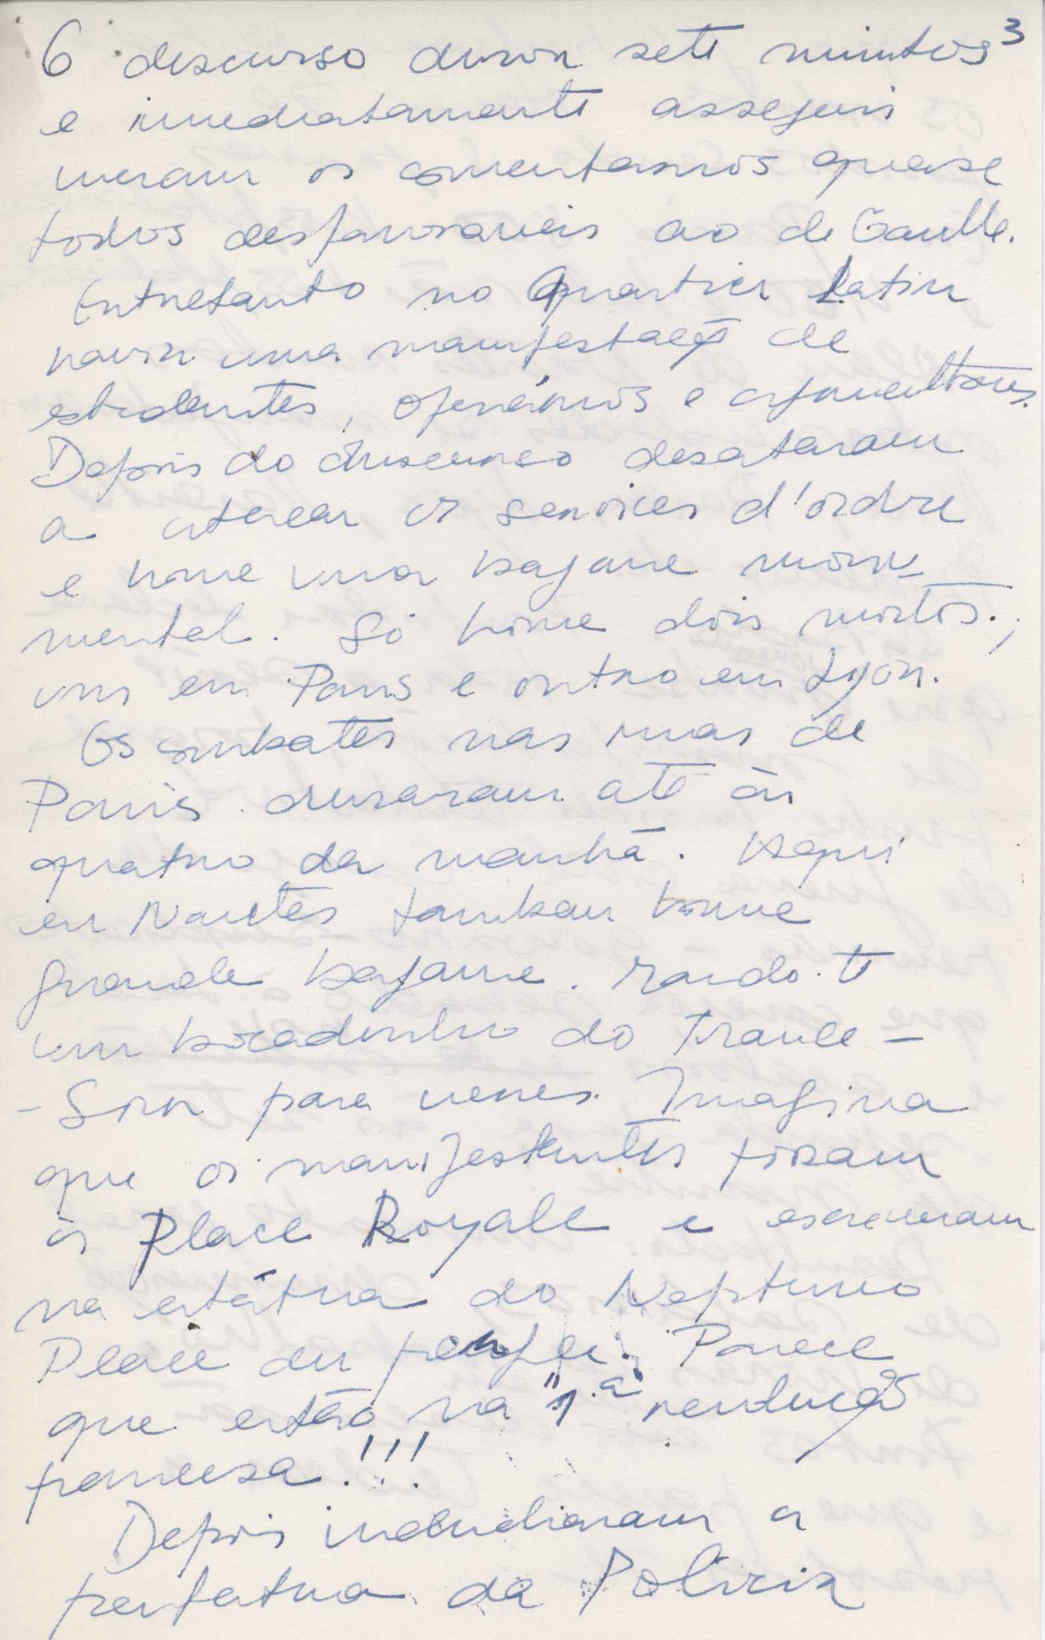 3
O discurso durou sete minutos
e imediatamente a seguir
vieram os comentarios quase
todos desfavoraveis ao de Gaulle.
Entretanto no Quartier Latin
havia uma manifestação de
estudantes, operários e agricultores.
Depois do discurso desataram
a atacar os services d'ordre
e houve uma bagarre monu-
mental. Só houve dois mortos.,
um em Paris e outro em Lyon.
Os combates nas ruas de
Paris duraram até às
quatro da manhã. Aqui
em Nantes tambem houve
grande bagarre. Mando-te
um bocadinho do France-
-Soir para veres. Imagina
que os manifestantes foram
à Place Royale e escreveram
na estátua do Neptuno
Place du peuple. Parece
que estão na "1.ª" revolução
francesa!!!
Depois incendiaram a
prefeitura da Policia